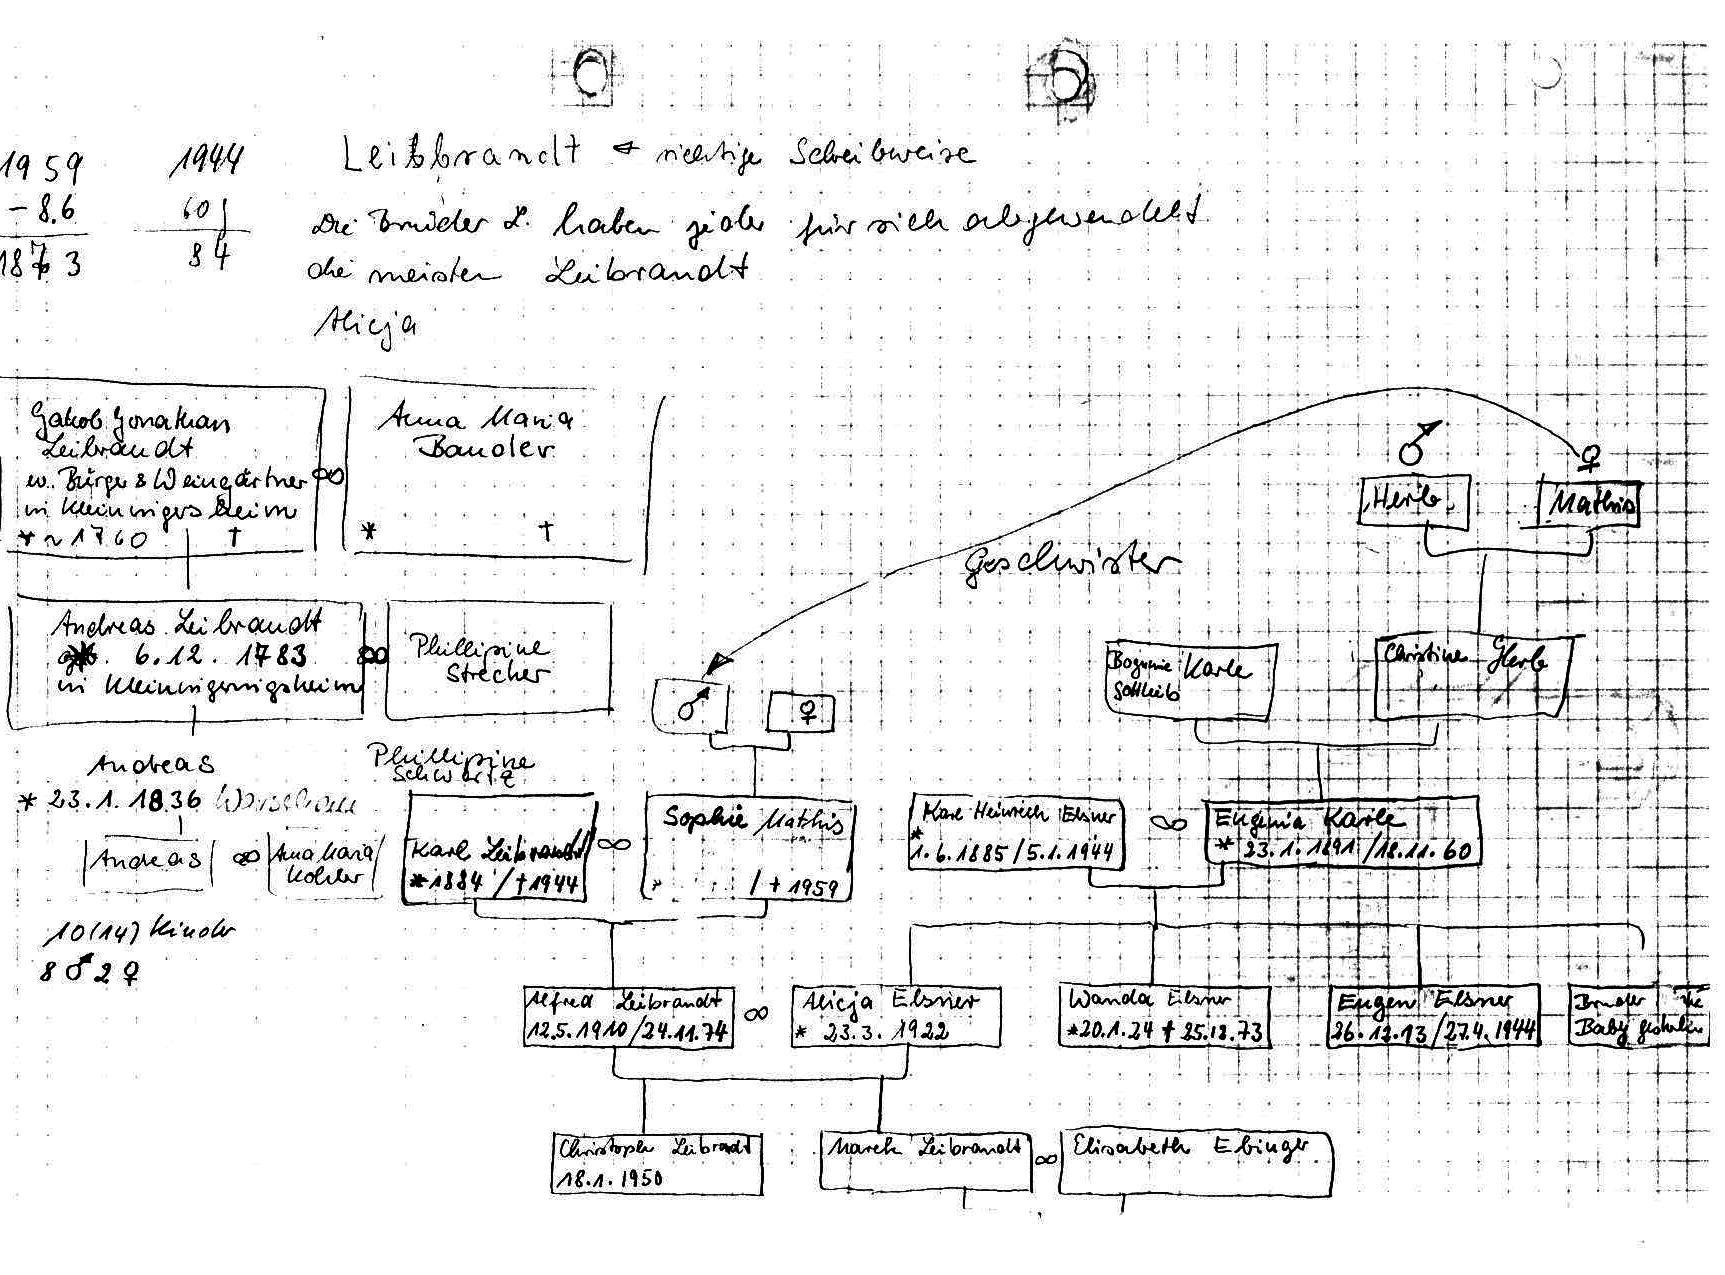 1959
- 8.6
1873
1944
60
84
Leibbrandt richtige Schreibweise
Die Brüder L. haben jeder für sich abgewandelt
die meisten Leibrandt
Alicja
Jakob Jonathan
Leibrandt
w. Bürger & Weingärtner
in Kleiningersheim
* ~ 1760 †
∞
Anna Maria
Bauder
* †
♂
Herb
♀
Mathis
Geschwister
Andreas Leibrandt
6.12.1783
in Kleiningersheim
∞
Phillipine
Strecher
♂
♀
Bogumie Karle
Gottlieb
Christine Herb
Andreas
* 23.1.1836 Warschau
Phillipine
Schwartz
Andreas
∞
Anna Maria
Kohler
10(14) Kinder
8 ♂ 2 ♀
Karl Leibrandt
*1884 / †1944
∞
Sophie Mathis
* / † 1959
Karl Heinrich Elsner
*
1.6.1885/5.1.1944
∞
Eugenia Karle
* 23.1.1891/18.11.60
Alfred Leibrandt
12.5.1910/24.11.74
∞
Alicja Elsner
* 23.3.1922
Wanda Elsner
*20.1.24 † 25.12.73
Eugen Elsner
26.12.13/27.4.1944
Bruder
Baby gestorben
Christoph Leibrandt
18.1.1950
Marek Leibrandt
∞
Elisabeth Ebinger